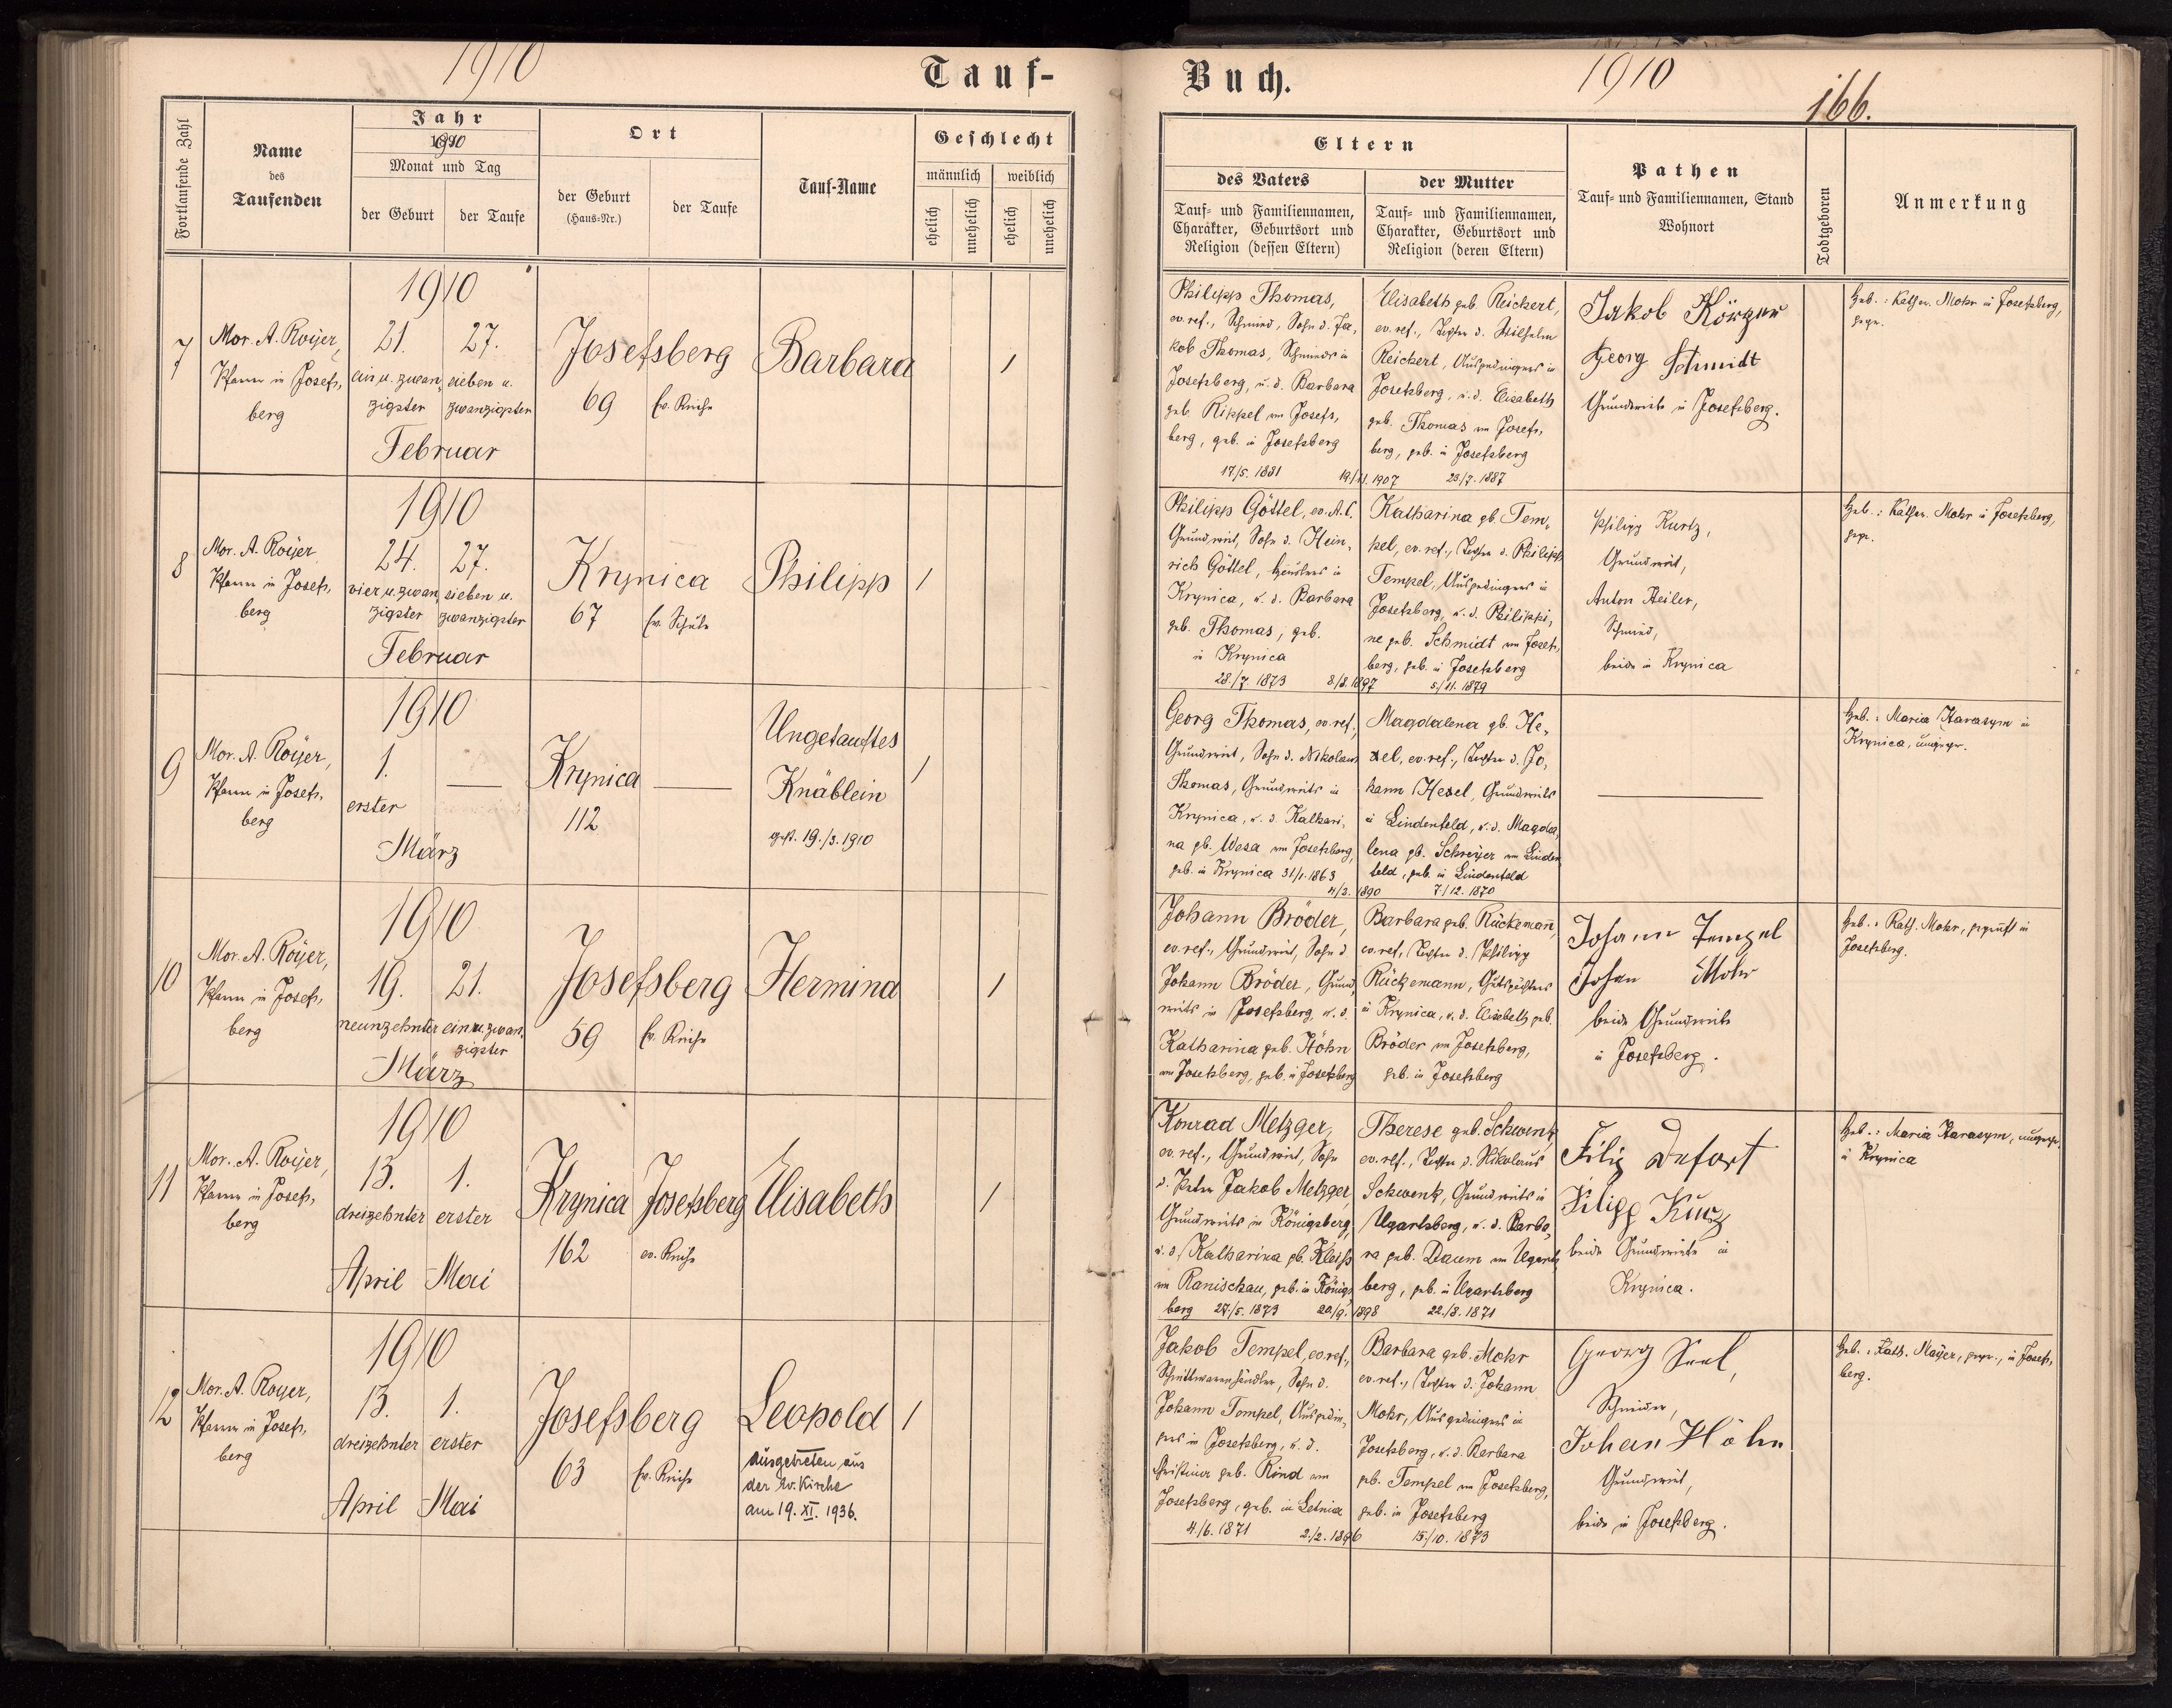 1910
Tauf-
Buch.
1910
166.
Fortlaufende Zahl
Name
des
Taufenden
Jahr
1910
Monat und Tag
der Geburt
der Taufe
Ort
der Geburt
(Haus-Nr.)
der Taufe
Tauf-Name
Geschlecht
männlich
weiblich
ehelich
unehelich
ehelich
unehelich
Eltern
des Vaters
Tauf- und Familiennamen,
Charakter, Geburtsort und
Religion (dessen Eltern)
der Mutter
Tauf- und Familiennamen,
Charakter, Geburtsort und
Religion (deren Eltern)
Pathen
Tauf- und Familiennamen, Stand
Wohnort
Todtgeboren
Anmerkung
7
Mor. A. Royer,
Pfarrer in Josefs-
berg
1910
21.
ein u. zwan-
zigster
27.
sieben u.
zwanzigster
Februar
Josefsberg
69
Ev. Kirche
Barbara
1
Philipp Thomas,
ev. ref., Schmied, Sohn d. Ja-
kob Thomas, Schmieds in
Josefsberg, u. d. Barbara
geb. Rippel von Josefs-
berg, geb. in Josefsberg
17/5. 1881
19/11. 1907
Elisabeth geb. Reichert,
ev. ref., Tochter d. Wilhelm
Reichert, Ausgedingers in
Josefsberg, u. d. Elisabeth
geb. Thomas von Josefs-
berg, geb. in Josefsberg
23/7. 1887
Jakob Körper
Georg Schmidt
Grundwirte in Josefsberg.
Heb.: Kathar. Mohr in Josefsberg,
gepr.
8
Mor. A. Royer
Pfarrer in Josefs-
berg
1910
24.
vier u. zwan-
zigster
27.
sieben u.
zwanzigster
Februar
Krynica
67
Ev. Schule
Philipp
1
Philipp Göttel, ev. A. C.
Grundwirt, Sohn d. Hein-
rich Göttel, Häuslers in
Krynica, u. d. Barbara
geb. Thomas, geb.
in Krynica
28./7. 1873
8/8. 1897
Katharina gb. Tem-
pel, ev. ref., Tochter d. Philipp
Tempel, Ausgedingers in
Josefsberg, u. d. Philippi-
ne geb. Schmidt von Josefs-
berg, geb. in Josefsberg
5/11. 1879
Philipp Kurtz,
Grundwirt,
Anton Heiler,
Schmied,
beide in Krynica
Heb.: Kathar. Mohr in Josefsberg,
gepr.
9
Mor. A. Royer,
Pfarrer in Josefs-
berg
1910
1.
erster
März
Krynica
112
Ungetauftes
Knäblein
gest. 19./3. 1910
1
Georg Thomas, ev. ref.,
Grundwirt, Sohn d. Nikolaus
Thomas, Grundwirts in
Krynica, u. d. Kathari-
na gb. Wesa von Josefsberg,
geb. in Krynica 31/1. 1863
4/3. 1890
Magdalena gb. He-
xel, ev. ref., Tochter d. Jo-
hann Hexel, Grundwirts
in Lindenfeld, u. d. Magda-
lena gb. Schreyer von Linden-
feld, geb. in Lindenfeld
7/12. 1870
Heb.: Maria Harasym in
Krynica, ungepr.
10
Mor. A. Royer,
Pfarrer in Josefs-
berg
1910
19.
neunzehnter
21.
ein u. zwan-
zigster
März
Josefsberg
59
Ev. Kirche
Hermina
1
Johann Bröder,
ev. ref., Grundwirt, Sohn d.
Johann Bröder, Grund-
wirts in Josefsberg, u. d.
Katharina geb. Höhn
von Josefsberg, geb. in Josefsberg
Barbara geb. Rückemann,
ev. ref., Tochter d. Philipp
Rückemann, Gutspächters
in Krynica, u. d. Elisabeth geb.
Bröder von Josefsberg,
geb. in Josefsberg
Johann Tempel
Johan Mohr
beide Grundwirte
in Josefsberg.
Heb.: Kath. Mohr, geprüft in
Josefsberg.
11
Mor. A. Royer,
Pfarrer in Josefs-
berg
1910
13.
dreizehnter
April
1.
erster
Mai
Krynica
162
Josefsberg
ev. Kirche
Elisabeth
1
Konrad Metzger,
ev. ref., Grundwirt, Sohn
d. Peter Jakob Metzger,
Grundwirts in Königsberg,
u. d. Katharina gb. Kleiss
von Ranischau, geb. in Königs-
berg 27/5. 1873
20/9. 1898
Therese geb. Schwenk,
ev. ref., Tochter d. Nikolaus
Schwenk, Grundwirts in
Ugartsberg, u. d. Barba-
ra geb. Daum von Ugarts-
berg, geb. in Ugartsberg
22./8. 1871
Filip Defort
Filipp Kurz
beide Grundwirte in
Krynica.
Heb.: Maria Harasym, ungepr.
in Krynica
12
Mor. A. Royer,
Pfarrer in Josefs-
berg
1910
13.
dreizehnter
April
1.
erster
Mai
Josefsberg
63
Ev. Kirche
Leopold
ausgetreten aus
der Ev. Kirche
am 19. XI. 1936.
1
Jakob Tempel, ev. ref.,
Schnittwarenhändler, Sohn d.
Johann Tempel, Ausgedin-
gers in Josefsberg, u. d.
Christina geb. Rind von
Josefsberg, geb. in Letnia
4./6. 1871
2./2. 1896
Barbara geb. Mohr
ev. ref., Tochter d. Johann
Mohr, Ausgedingers in
Josefsberg, u. d. Barbara
geb. Tempel von Josefsberg,
geb. in Josefsberg
15/10. 1873
Georg Seel,
Schneider,
Johan Höhn
Grundwirt,
beide in Josefsberg.
Heb.: Kath. Mayer, gepr., in Josefs-
berg.